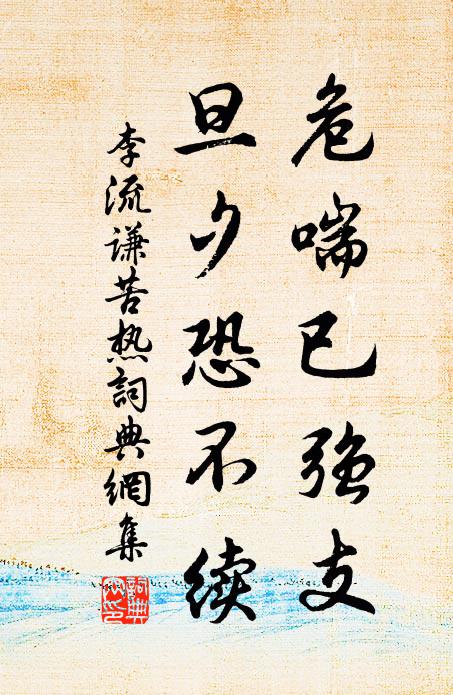 危喘已強支
旦夕恐不续
李流谦苦热詞典網集